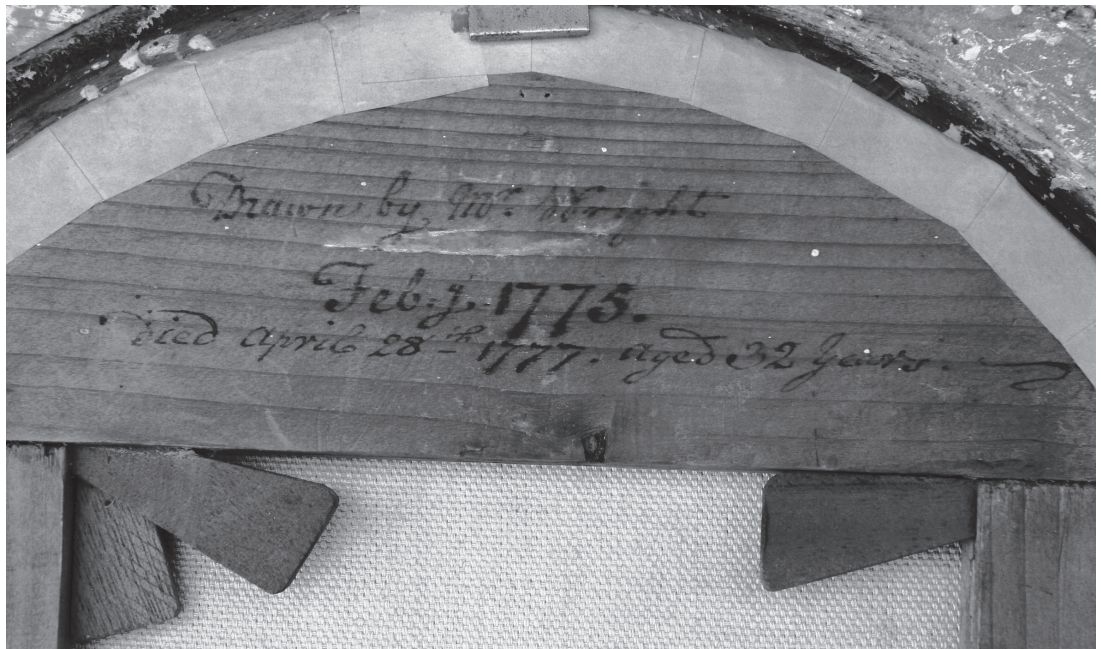 Drawn by Mr. Wright
Feb:y. 1775.
Died April 28th 1777. Aged 32 Years.